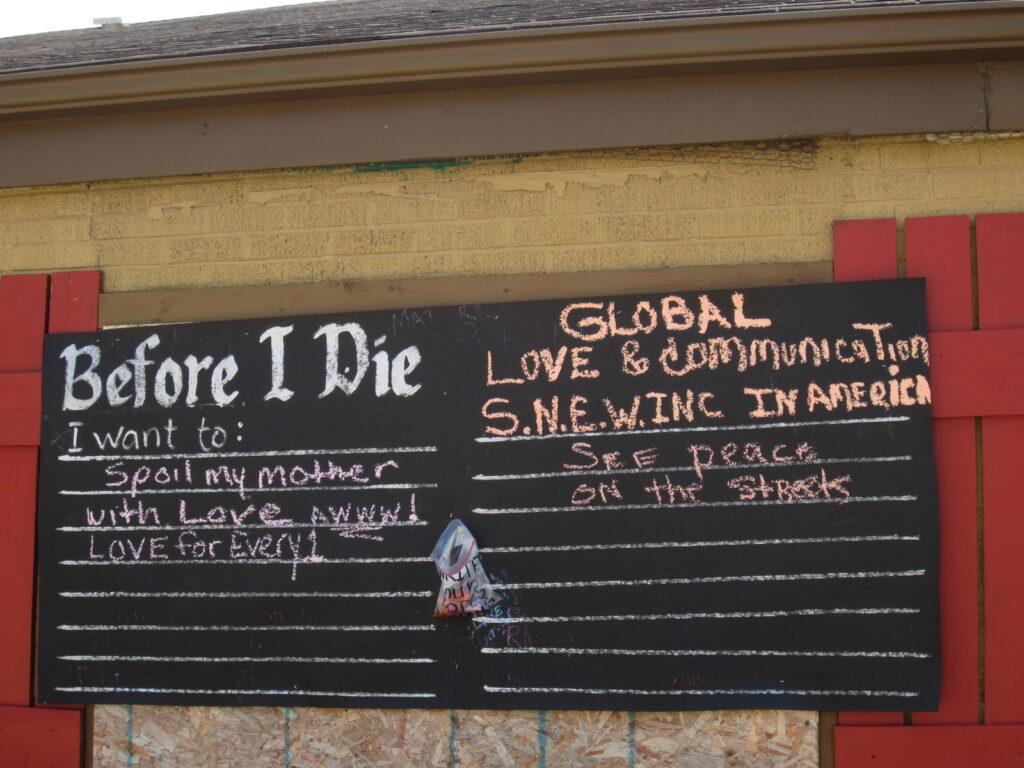 Before I Die
I want to:
Spoil my mother
with Love AWWW!
LOVE for Every1
GLOBAL
LOVE & COMMUNICATION
S.N.E.W.INC IN AMERICA
SEE peace
ON the StREEts